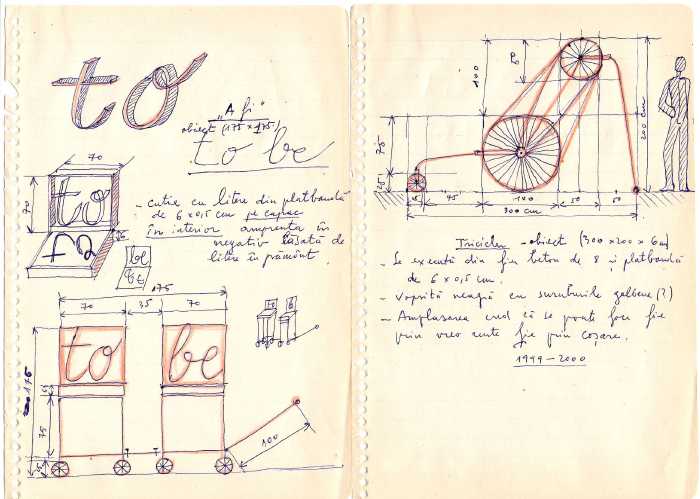 to
„A fi"
obiect (175 x 175)
to be
70
70
to
- cutie cu litere din platbandă
de 6 x 0,5 cm pe capac
în interior amprenta în
negativ lăsată de
litere în pământ.
be
175
70
35
70
to
be
175
75
100
100
75
25
45
100
50
50
300 cm
200 cm
Triciclu - obiect (300 x 200 x 6 cm)
- Se execută din fier beton de 8 și platbandă
de 6 x 0,5 cm.
- Vopsită neagră cu șuruburile galbene (?)
- Amplasarea cred că se poate face fie
prin vreo curte fie prin coșare.
1999-2000